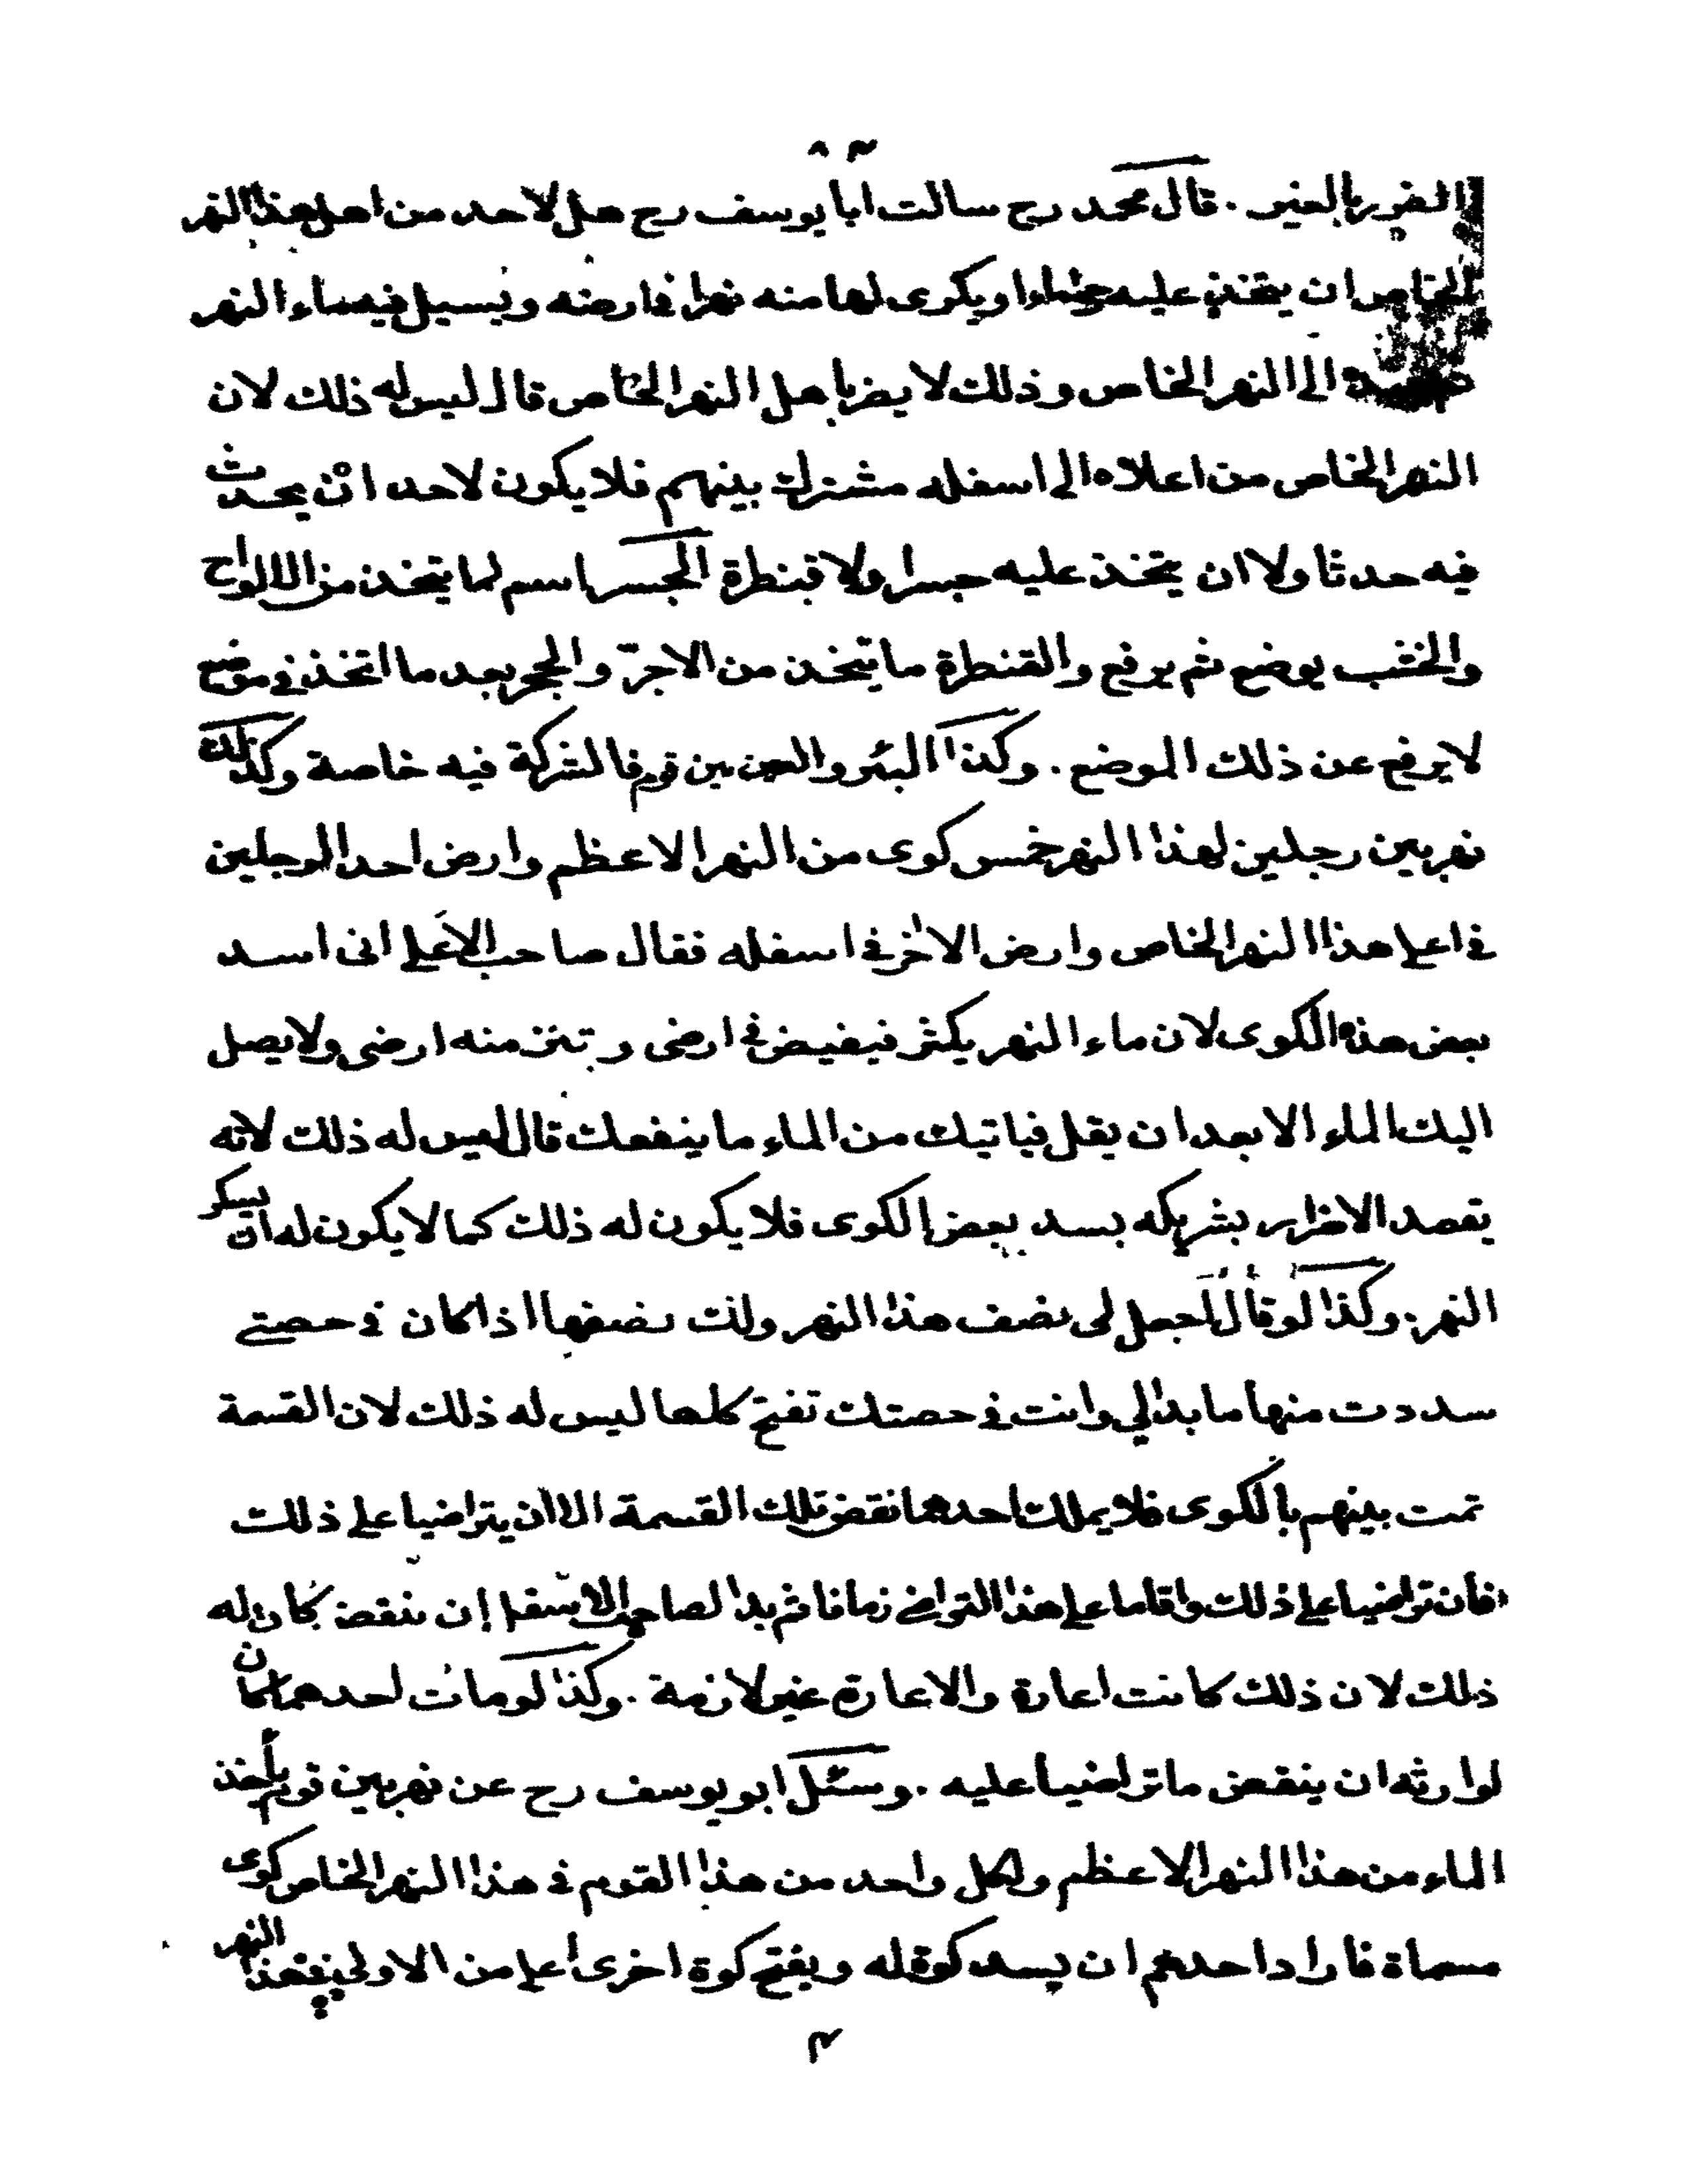 ٨٣
الضرر بالغير . قال محمد رح سالت ابا يوسف رح هل لاحد من اهل هذا النهر
الخاص ان يتخذ عليه او يكرى لها منه نهرا فى ارضه ويسيل فيه ماء النهر
الى النهر الخاص وذلك لا يضر باهل النهر الخاص قال ليس له ذلك لان
النهر الخاص من اعلاه الى اسفله مشترك بينهم فلا يكون لاحد ان يحدث
فيه حدثا ولا ان يتخذ عليه جسرا ولا قنطرة الجسر اسم لما يتخذ من الالواح
والخشب يوضع ثم يرفع والقنطرة ما يتخذ من الاجرّ والحجر بعد ما اتخذ فى موضع
لا يرفع عن ذلك الموضع . وكذا البئر والعين بين قوم فالشركة فيه خاصة وكذلك
نهر بين رجلين لهذا النهر خمس كوى من النهر الاعظم وارض احد الرجلين
فى اعلى هذا النهر الخاص وارض الاخر فى اسفله فقال صاحب الاعلى انى اسد
بعض هذه الكوى لان ماء النهر يكثر فيفيض فى ارضى و تنز منه ارضى ولا يصل
اليك الماء الا بعد ان يقل فياتيك من الماء ما ينفعك قال ليس له ذلك لانه
يقصد الاضرار بشريكه بسد بعض الكوى فلا يكون له ذلك كما لا يكون له ان يسكر
النهر . وكذا لو قال اجعل لى نصف هذا النهر ولك نصفها اذا كان فى حصتى
سددت منها ما بدا لي وانت فى حصتك تفتح كلها ليس له ذلك لان القسمة
تمت بينهم بالكوى فلا يملك احدهما نقض تلك القسمة الا ان يتراضيا على ذلك
فان تراضيا على ذلك واقاما على هذا التراضى زمانا ثم بدا لصاحب الاسفل ان ينقض كان له
ذلك لان ذلك كانت اعارة والاعارة غير لازمة . وكذا لو مات احدهما كان
لوارثه ان ينقض ما تراضيا عليه . وسئل ابو يوسف رح عن نهر بين قوم يأخذ
الماء من هذا النهر الاعظم ولكل واحد من هذا القوم فى هذا النهر الخاص كوى
مسماة فاراد احدهم ان يسد كوة له ويفتح كوة اخرى اعلى من الاولى فى هذا النهر